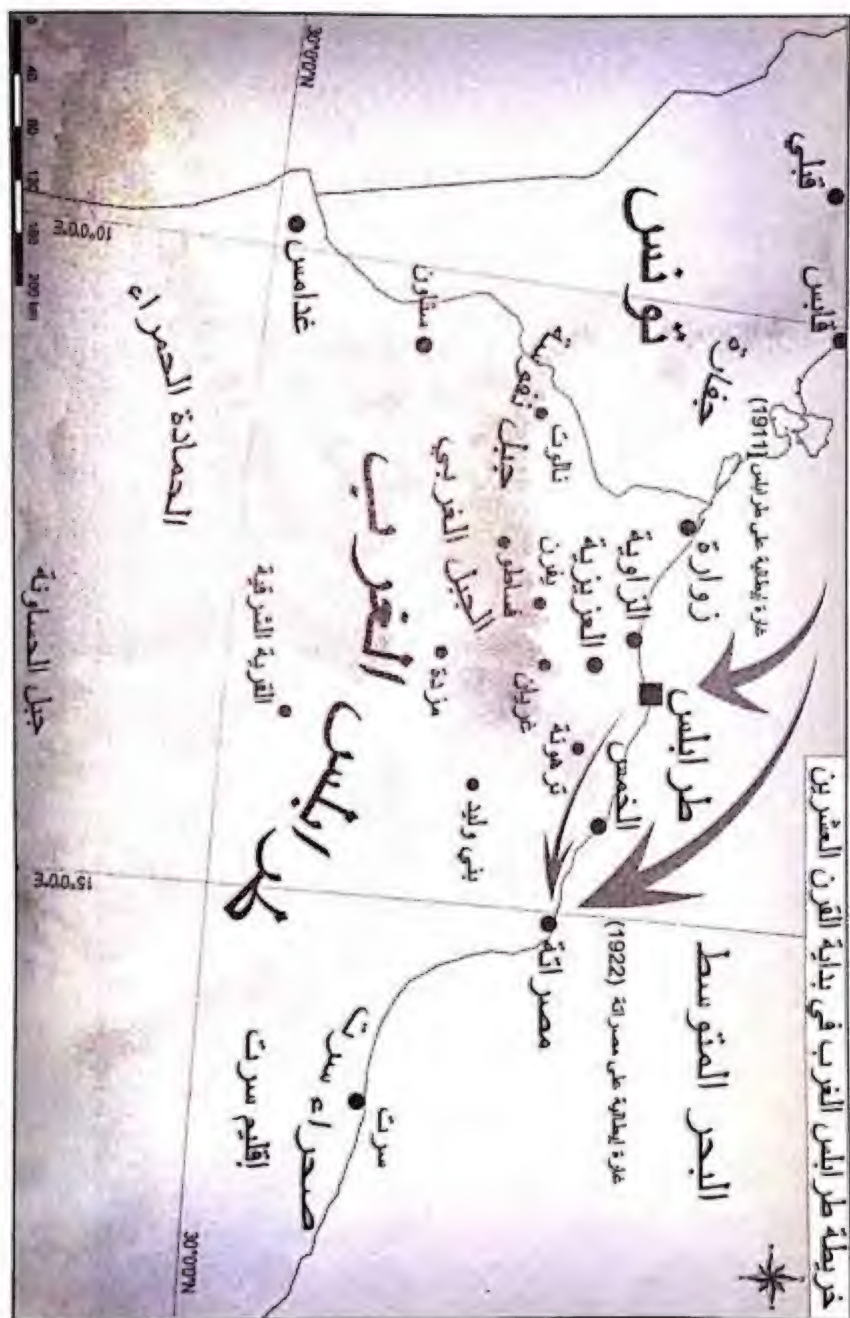 خريطة طرابلس الغرب في بداية القرن العشرين
البحر المتوسط
غارة إيطالية على طرابلس (1911)
غارة إيطالية على مصراتة (1922)
قبلي
قابس
تونس
جفارة
زوارة
الزاوية
العزيزية
طرابلس
الخمس
مصراتة
ترهونة
غريان
يفرن
فساطو
نالوت
جبل نفوسة
الجبل الغربي
سناون
غدامس
مزدة
بني وليد
القرية الشرقية
طرابلس الغرب
الحمادة الحمراء
جبل الحساونة
سرت
صحراء سرت
إقليم سرت
30°0'0"N
30°0'0"N
10°0'0"E
15°0'0"E
0 40 80 120 160 200 km